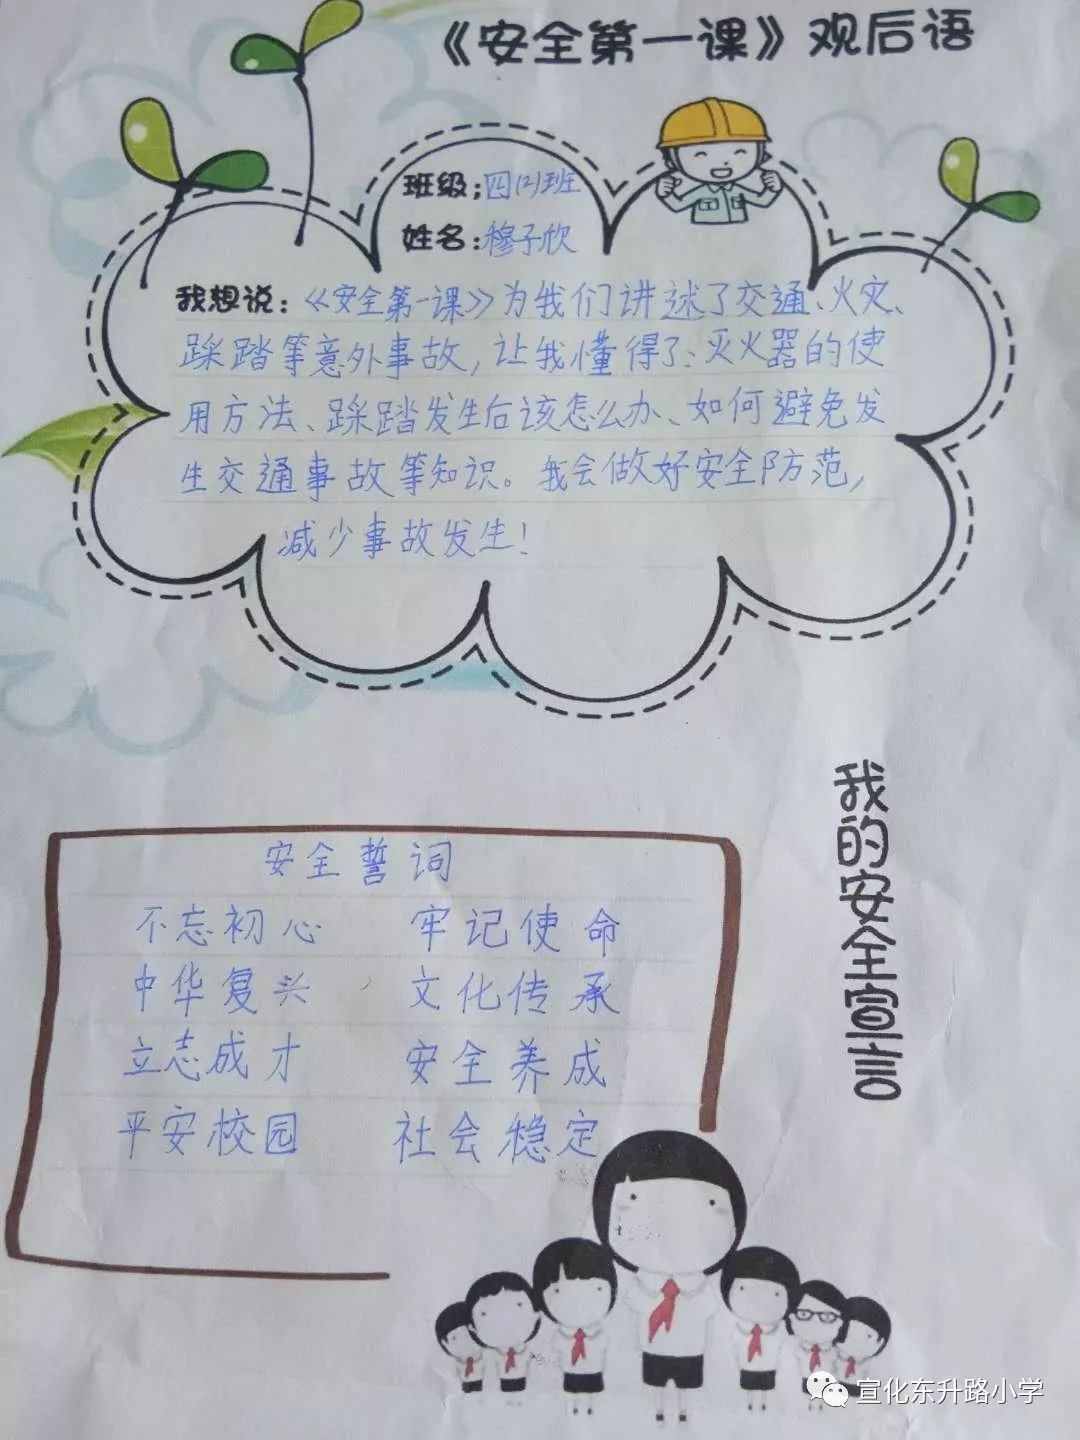 《安全第一课》观后语
班级：四(2)班
姓名：穆子欣
我想说：《安全第一课》为我们讲述了交通、火灾、
踩踏等意外事故，让我懂得了：灭火器的使
用方法、踩踏发生后该怎么办、如何避免发
生交通事故等知识。我会做好安全防范，
减少事故发生！
我的安全宣言
安全誓词
不忘初心 牢记使命
中华复兴 文化传承
立志成才 安全养成
平安校园 社会稳定
宣化东升路小学